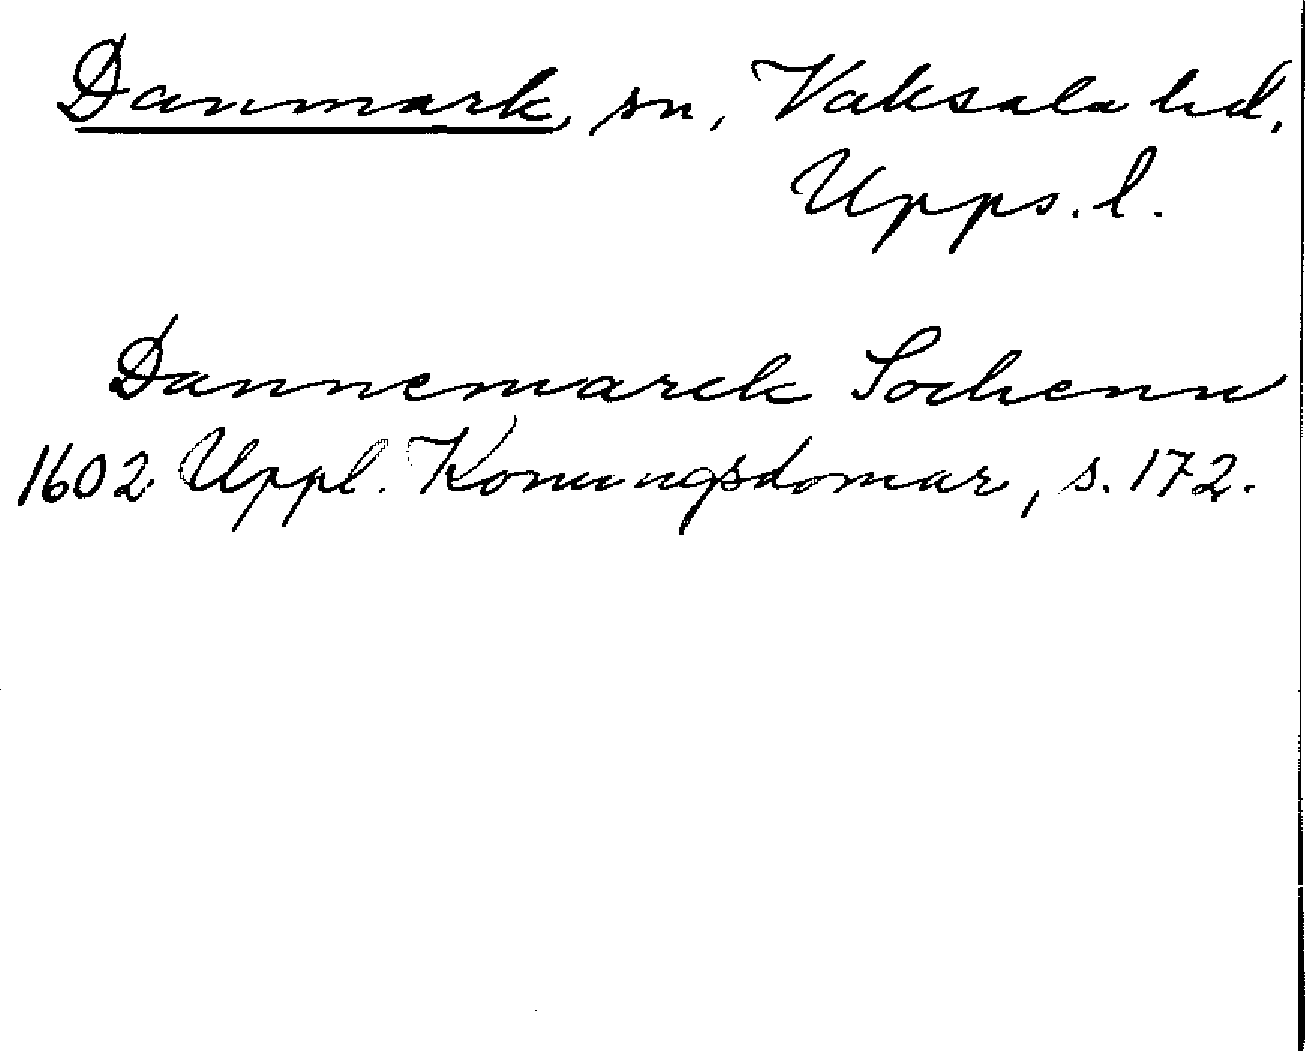 Danmark, sn, Vaksala hd,
Upps. l.
Dannemarck Sochenn
1602 Uppl. Konungsdomar, s. 172.